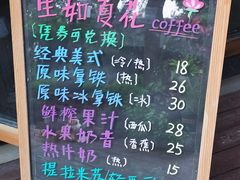 生如夏花
coffee
(凭券可兑换)
经典美式(冷/热) 18
原味拿铁(热) 26
原味冰拿铁(冰) 30
鲜榨果汁(西瓜) 28
水果奶昔(香蕉) 25
热牛奶(热) 15
提拉米苏/